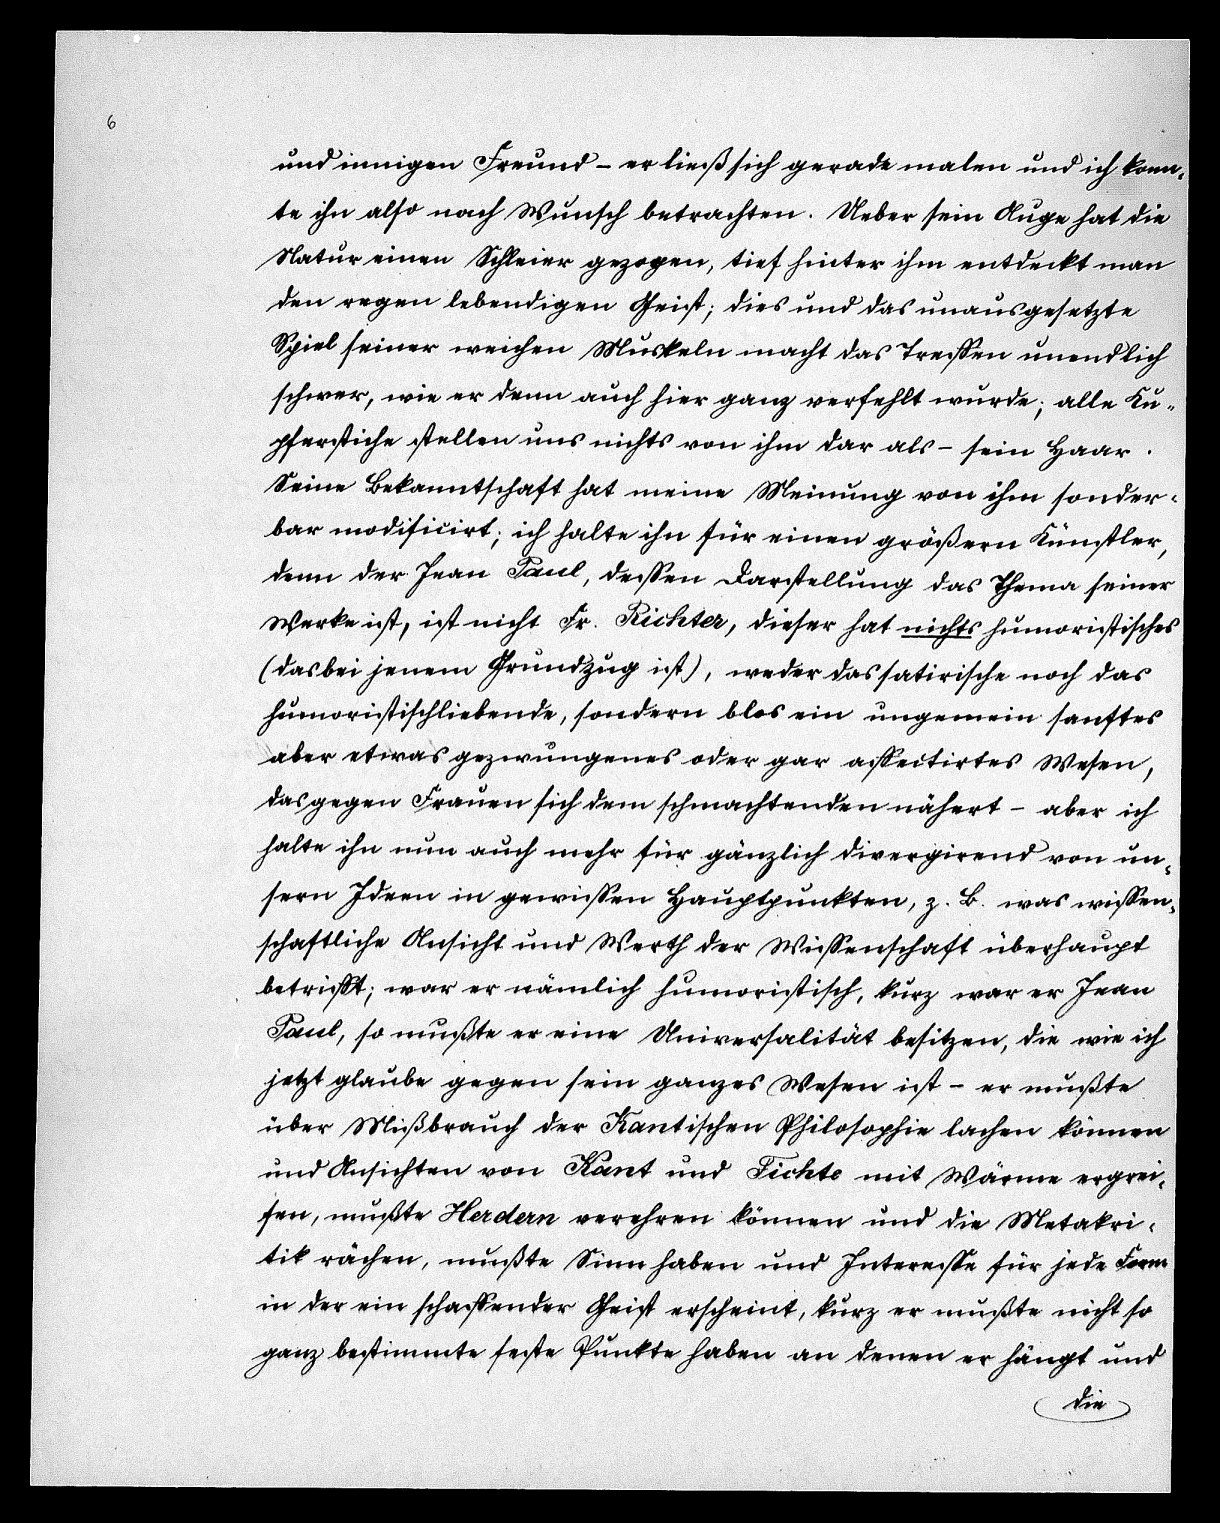 6
und innigen Freund – er ließ sich gerade malen und ich konn-
te ihn also nach Wunsch betrachten. Ueber sein Auge hat die
Natur einen Schleier gezogen, tief hinter ihm entdeckt man
den regen lebendigen Geist; dies und das unausgesetzte
Spiel seiner weichen Muskeln macht das Treffen unendlich
schwer, wie er denn auch hier ganz verfehlt wurde; alle Ku-
pferstiche stellen uns nichts von ihm dar als – sein Haar.
Seine Bekanntschaft hat meine Meinung von ihm sonder-
bar modificirt; ich halte ihn für einen größern Künstler,
denn der Jean Paul, dessen Darstellung das Thema seiner
Werke ist, ist nicht Fr. Richter, dieser hat nichts humoristisches
(das bei jenem Grundzug ist), weder das satirische noch das
humoristischliebende, sondern blos ein ungemein sanftes
aber etwas gezwungenes oder gar affectirtes Wesen,
das gegen Frauen sich dem schmachtenden nähert – aber ich
halte ihn nun auch mehr für gänzlich divergirend von un-
sern Ideen in gewissen Hauptpunkten, z. B. was wissen-
schaftliche Ansicht und Werth der Wissenschaft überhaupt
betrifft; war er nämlich humoristisch, kurz war er Jean
Paul, so mußte er eine Universalität besitzen, die wie ich
jetzt glaube gegen sein ganzes Wesen ist – er mußte
über Mißbrauch der Kantischen Philosophie lachen können
und Ansichten von Kant und Fichte mit Wärme ergrei-
fen, mußte Herdern verehren können und die Metakri-
tik rächen, mußte Sinn haben und Interesse für jede Form
in der ein schaffender Geist erscheint, kurz er mußte nicht so
ganz bestimmte feste Punkte haben an denen er hängt und
die